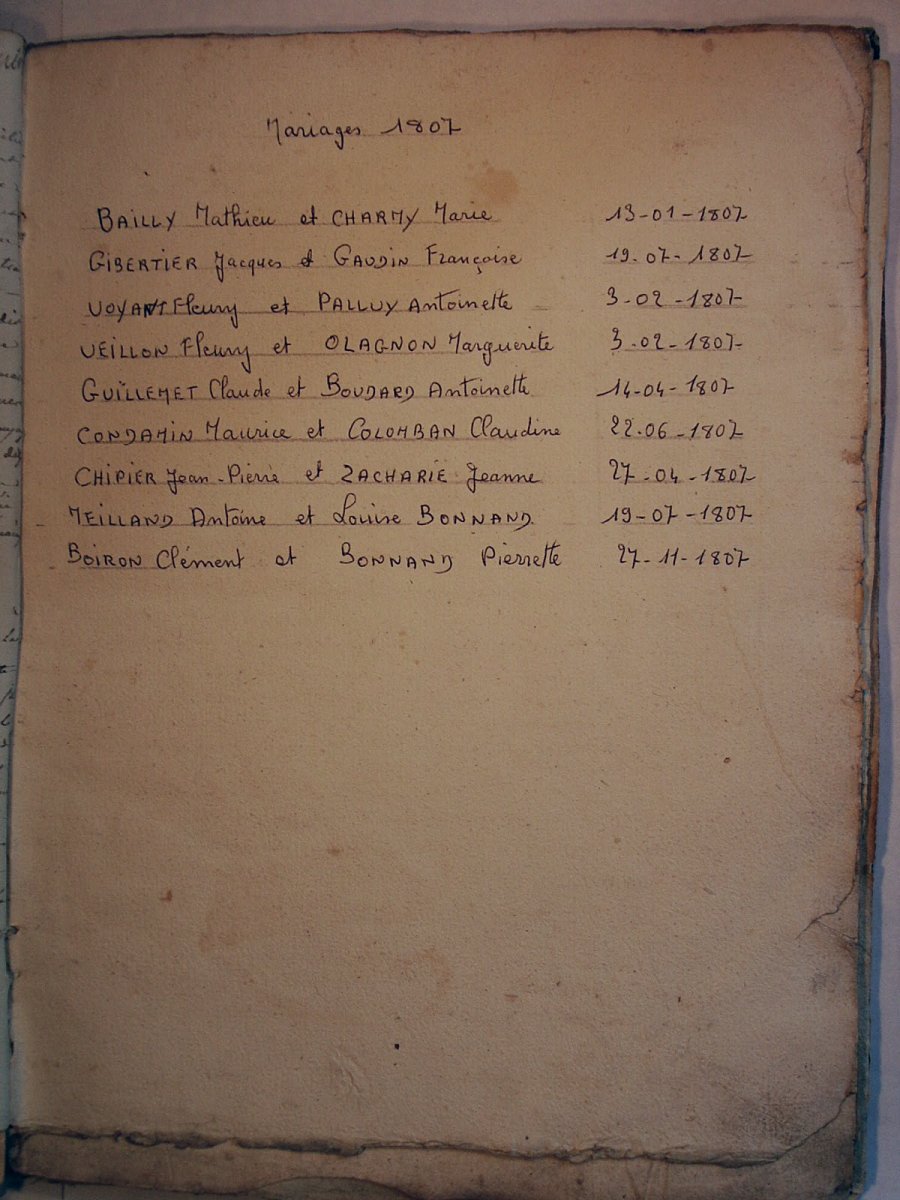 Mariages 1807
BAILLY Mathieu et CHARMY Marie 13-01-1807
GIBERTIER Jacques et GAUDIN Françoise 19-07-1807
VOYANT Fleury et PALLUY Antoinette 3-02-1807
VEILLON Fleury et OLAGNON Marguerite 3-02-1807
GUILLEMET Claude et BOUDARD Antoinette 14-04-1807
CONDAMIN Maurice et COLOMBAN Claudine 22.06-1807
CHIPIER Jean-Pierre et ZACHARIE Jeanne 27-04-1807
MEILLAND Antoine et Louise BONNAND 19-07-1807
BOIRON Clément et BONNAND Pierrette 27-11-1807